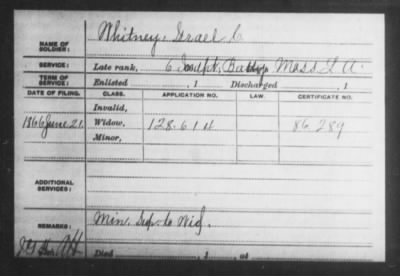 NAME OF SOLDIER: Whitney, Israel C
SERVICE: Late rank, 6 Indpt. Batty. Mass L. A.
TERM OF SERVICE: Enlisted , 1 Discharged , 1
DATE OF FILING. CLASS. APPLICATION NO. LAW. CERTIFICATE NO.
Invalid,
1866 June 21. Widow, 128.611 86.289
Minor,
ADDITIONAL SERVICES:
REMARKS: Min. Sup. to Wid.
Died , 1 , at